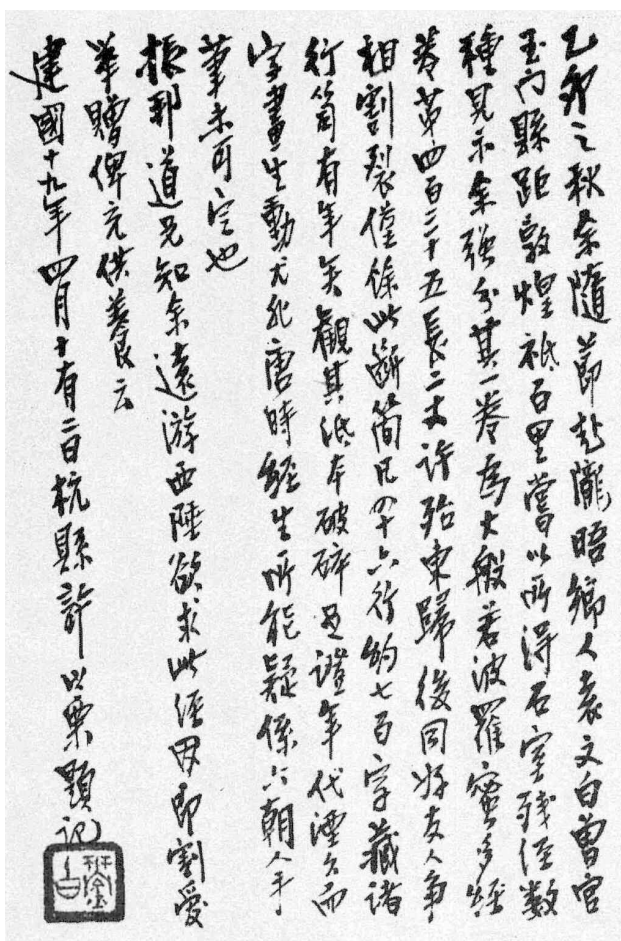 乙卯之秋余隨節赴隴晤鄉人袁文白曾官
玉門縣距敦煌祗百里嘗以所得石室殘經數
種見示余強分其一卷為大般若波羅蜜多經
卷第四百二十五長二丈許殆東歸後同好友人爭
相割裂僅餘此斷簡凡四十六行約七百字藏諸
行笥有年矣觀其紙本破碎足證年代湮久而
字畫生動尤非唐時經生所能疑係六朝人手
筆未可定也
振邦道兄知余遠游西陲欲求此經因即割愛
舉贈俾充供養云
建國十九年四月十有二日杭縣許以栗題記